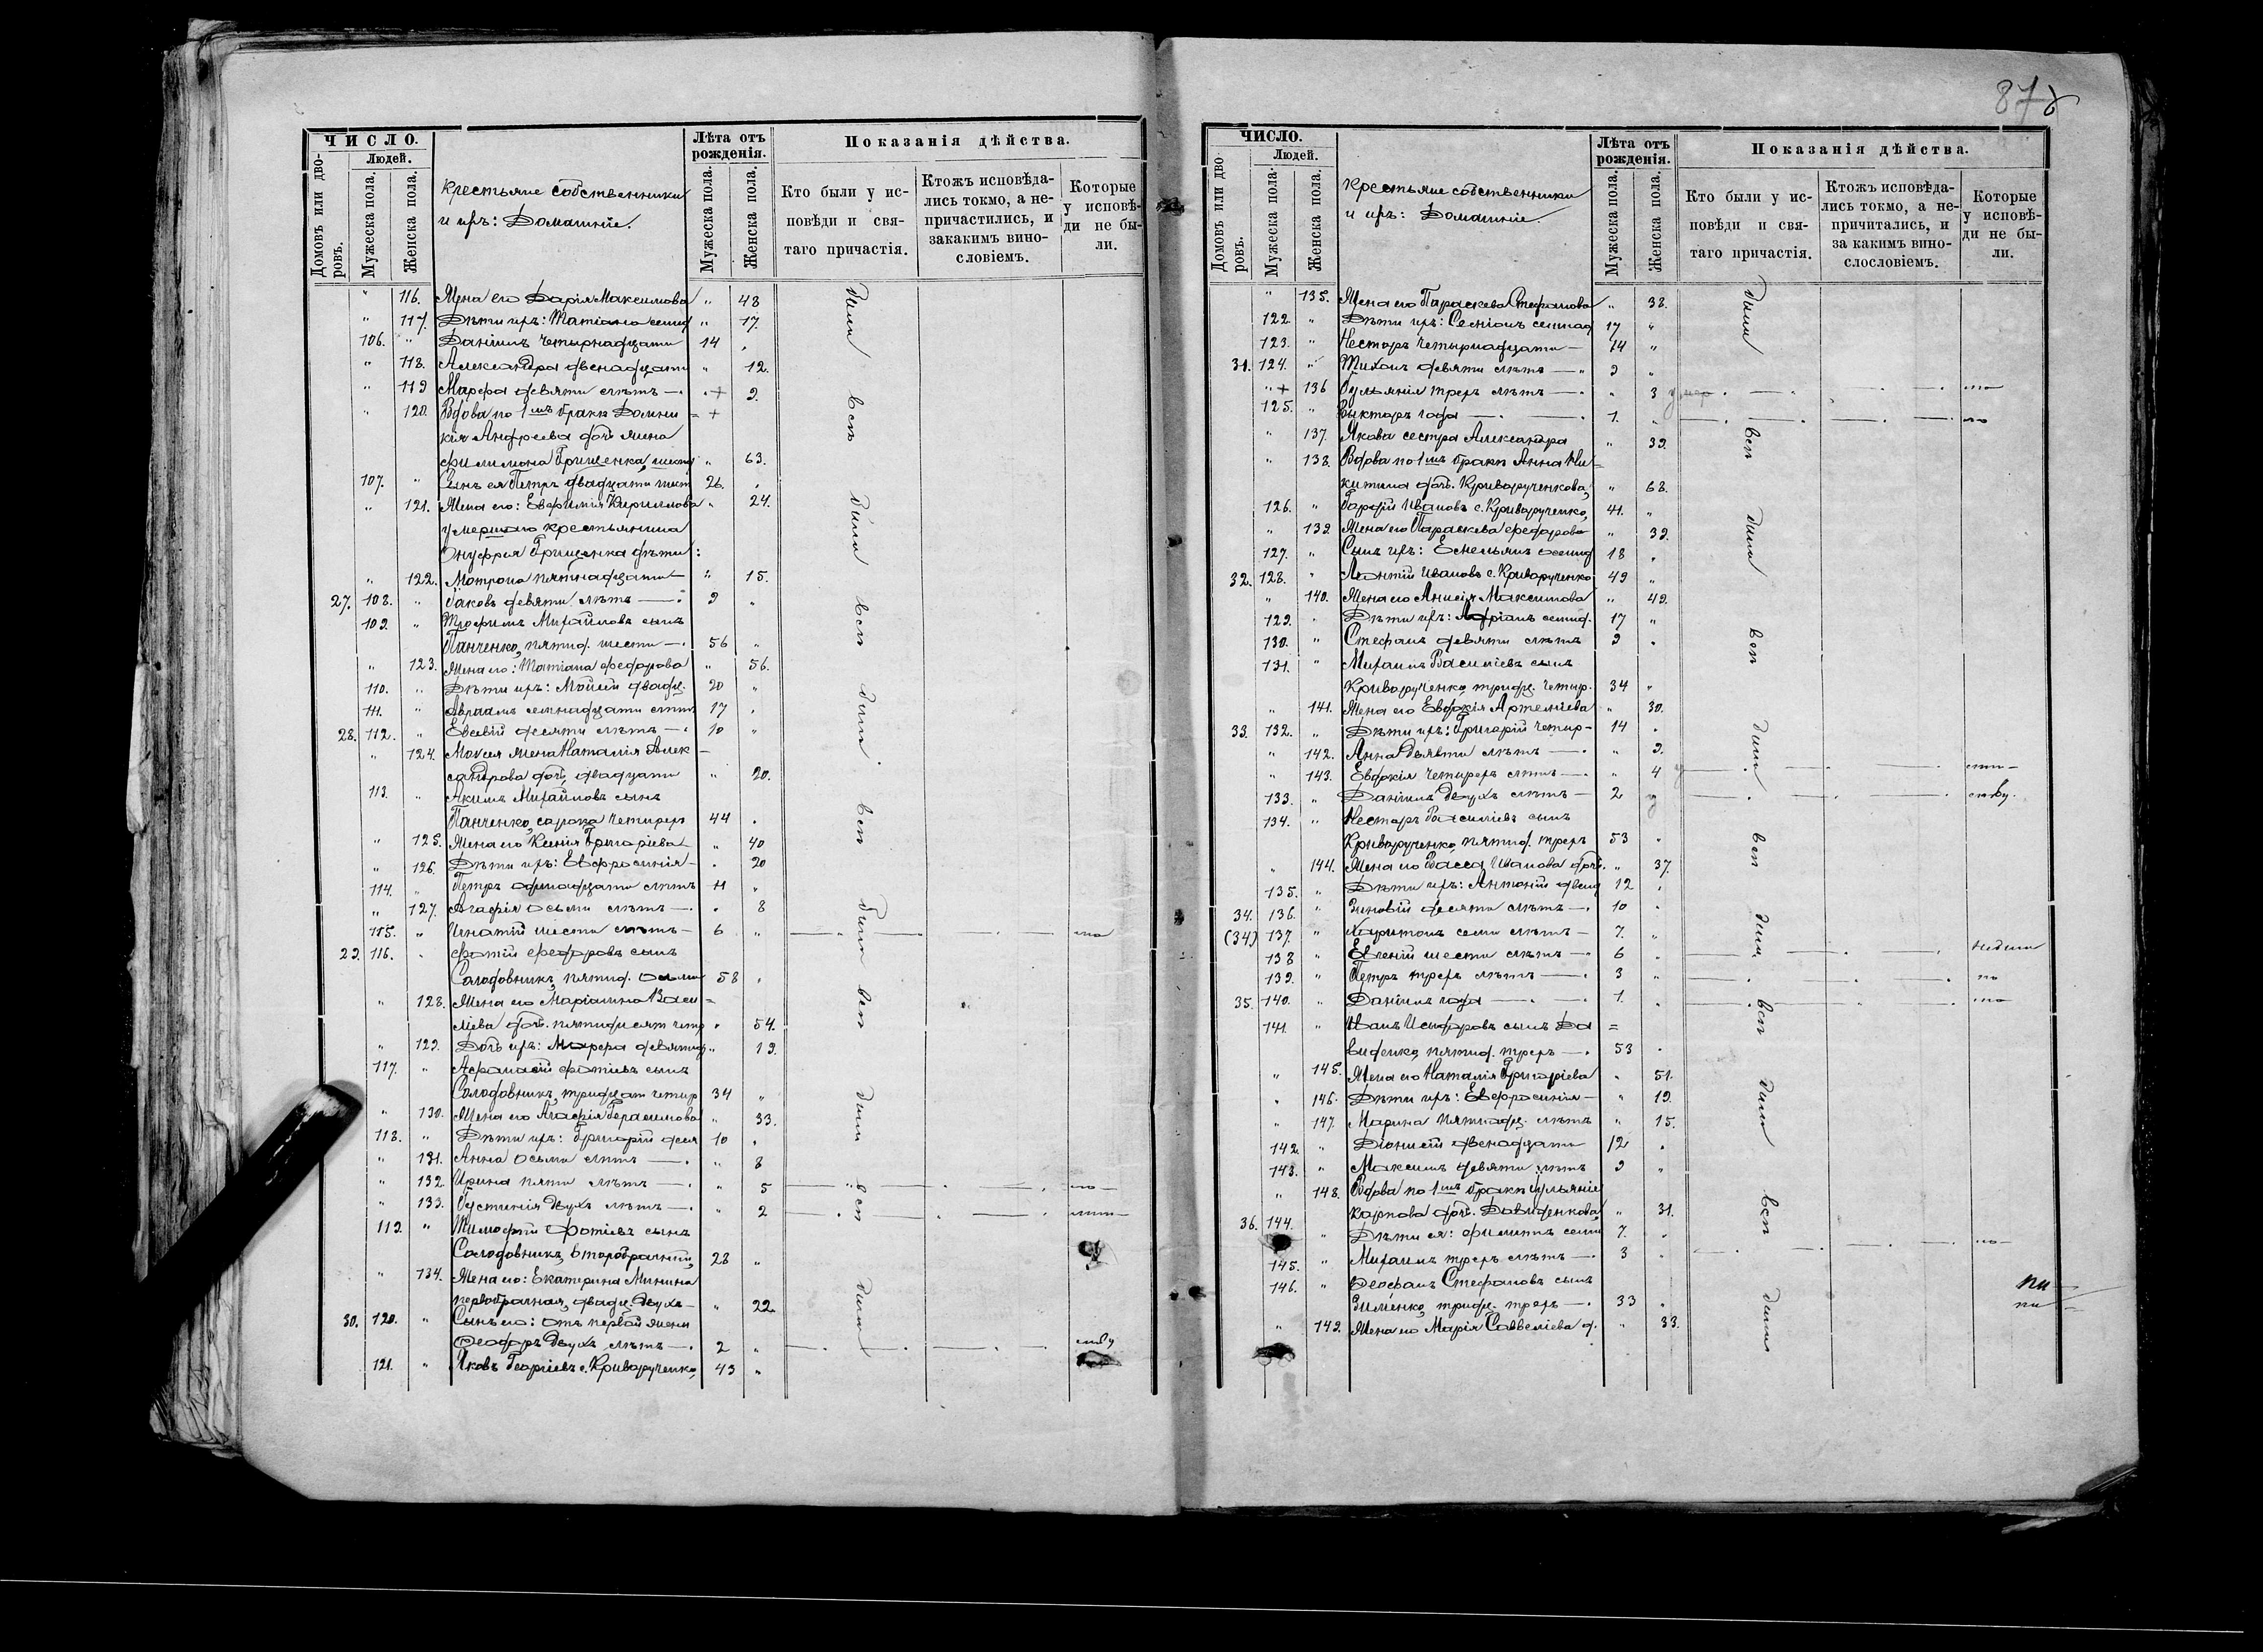 ЧИСЛО.
Людей.
Домовъ или дворовъ.
Мужеска пола.
Женска пола.
Крестьяне собственники
и ихъ: Домашніе.
Лѣта отъ рожденія.
Мужеска пола.
Женска пола.
Показанія дѣйства.
Кто были у исповѣди и святаго причастія.
Ктожъ исповѣдались токмо, а непричастились, и закакимъ винословіемъ.
Которые у исповѣди не были.
" 116. Жена его Дарія Максимова " 48
" 117. Дѣти ихъ: Татіана семнад " 17.
106. " Даніилъ четырнадцати 14 "
" 118. Александра двенадцати " 12.
" 119 Марфа девяти лѣтъ — . + 9.
" 120. Вдова по 1мъ бракѣ Домни = +
кія Андреева доч. жена
Филимона Грищенка, шест " 63.
107. " Сынъ ея Петръ двадцати шест 26. "
" 121. Жена его: Евфимія Кириллова " 24.
умершаго крестьянина
Онуфрія Грищенка дѣти:
" 122. Мотрона пятнадцати — " 15.
27. 108. " Іаковъ девяти лѣтъ — 9 "
109. " Трофимъ Михайловъ сынъ
Панченко, пятид. шести — 56 "
" 123. Жена его: Татіана Федорова " 56.
110. " Дѣти ихъ: Моисей двадц. 20 "
111. " Авраамъ семнадцати лѣтъ 17 "
28. 112. " Евсевій десяти лѣтъ — 10 "
" 124. Моисея жена Наталія Алек —
сандрова доч. двадцати " 20.
113. " Акимъ Михайловъ сынъ
Панченко, сорока четырех 44 .
" 125. Жена его Ксенія Григоріева " 40
" 126. Дѣти ихъ: Евфросинія — . 20
114. " Петръ одинадцати лѣтъ 11 "
" 127. Агафія осьми лѣтъ — . 8
115. " Игнатій шести лѣтъ — 6 "
29. 116. . Фотій Федоровъ сынъ
Солодовникъ, пятид. осьми 58 .
" 128. Жена его Маріамна Васи =
ліева доч. пятидесят четр . 54.
" 129. Дочь ихъ: Марфа девятнад " 19.
117. " Афанасій Фотіевъ сынъ
Солодовникъ, тридцат четыр 34 "
" 130. Жена его Агафія Герасимова " 33.
118. " Дѣти ихъ: Григорій деся 10 .
" 131. Анна осьми лѣтъ — . " 8
" 132. Ирина пяти лѣтъ — . " 5
" 133. Іустинія двухъ лѣтъ — . " 2
119. " Тимофей Фотіевъ сынъ
Солодовникъ, второбрачный, 28 "
" 134. Жена его: Екатерина Минина
первобрачная, двадц. двухъ — " 22.
30. 120. " Сынъ его: отъ первой жены
Феодоръ двухъ лѣтъ — . 2 "
121. " Яковъ Георгіевъ с. Криворученко, 43 "
были вси были вси были вси были вси были вси были
87
ЧИСЛО.
Людей.
Домовъ или дворовъ.
Мужеска пола.
Женска пола.
Крестьяне собственники
и ихъ: Домашніе.
Лѣта отъ рожденія.
Мужеска пола.
Женска пола.
Показанія дѣйства.
Кто были у исповѣди и святаго причастія.
Ктожъ исповѣдались токмо, а непричитались, и за какимъ винослословіемъ.
Которые у исповѣди не были.
" 135. Жена его Параскева Стефанова " 38.
122. " Дѣти ихъ: Сесніонъ семнад 17 "
123. " Несторъ четырнадцати — 14 "
31. 124. " Тихонъ девяти лѣтъ — " 9 "
" + 136 Іуліанія трехъ лѣтъ — . " 3 умер.
125. " Викторъ года — . 1. "
" 137. Якова сестра Александра " 39.
" 138. Вдова по 1мъ бракѣ Анна Ни =
китина доч. Криворученкова, " 68.
126. " Гордій Ивановъ с. Криворученко, 41. "
" 139. Жена его Параскева Федорова " 39.
127. " Сынъ ихъ: Емельянъ осемнад 18 .
32. 128. " Леонтій Ивановъ с. Криворученко 49 "
" 140. Жена его Анисія Максимова " 49.
129. " Дѣти ихъ: Адріанъ семнад. 17 "
130. " Стефанъ девяти лѣтъ 9 .
131. " Михаилъ Василіевъ сынъ
Криворученко, тридц. четыр. 34 "
" 141. Жена его Евдокія Артеміева " 30.
33. 132. " Дѣти ихъ: Григорій четыр — 14 .
" 142. Анна девяти лѣтъ — . " 9.
" 143. Евдокія четырехъ лѣтъ — . " 4
133. " Даніилъ двухъ лѣтъ — 2
134. " Несторъ Василіевъ сынъ
Криворученко, пятид. трехъ 53 "
" 144. Жена его Васса Иванова доч. " 37.
135. " Дѣти ихъ: Антоній двенд 12 .
34. 136. " Зиновій десяти лѣтъ — . 10 .
(34) 137. " Харитонъ семи лѣтъ — 7. "
138 " Евгеній шести лѣтъ — " 6 .
139. " Петръ трехъ лѣтъ — . 3 "
35. 140. " Даніилъ года — . 1. .
141. " Иванъ Исидоровъ сынъ Да =
виденко, пятид. трехъ — . 53 .
" 145. Жена его Наталія Григоріева . 51.
" 146. Дѣти ихъ: Евфросинія — " 19.
" 147. Марина пятнадц. лѣтъ " 15.
142. " Діонисій двенадцати 12 .
143. " Максимъ девяти лѣтъ 9 "
" 148. Вдова по 1мъ бракѣ Іуліанія
Карпова доч. Давиденкова, " 31.
36. 144. " Дѣти ея: Филиппъ семи 7. .
145. " Михаилъ трехъ лѣтъ — . 3 .
146. " Феофанъ Стефановъ сынъ
Зименко, тридц. трехъ — . 33 .
" 149. Жена его Марія Саввеліева д. " 33.
были вси были вси были вси были вси были вси были